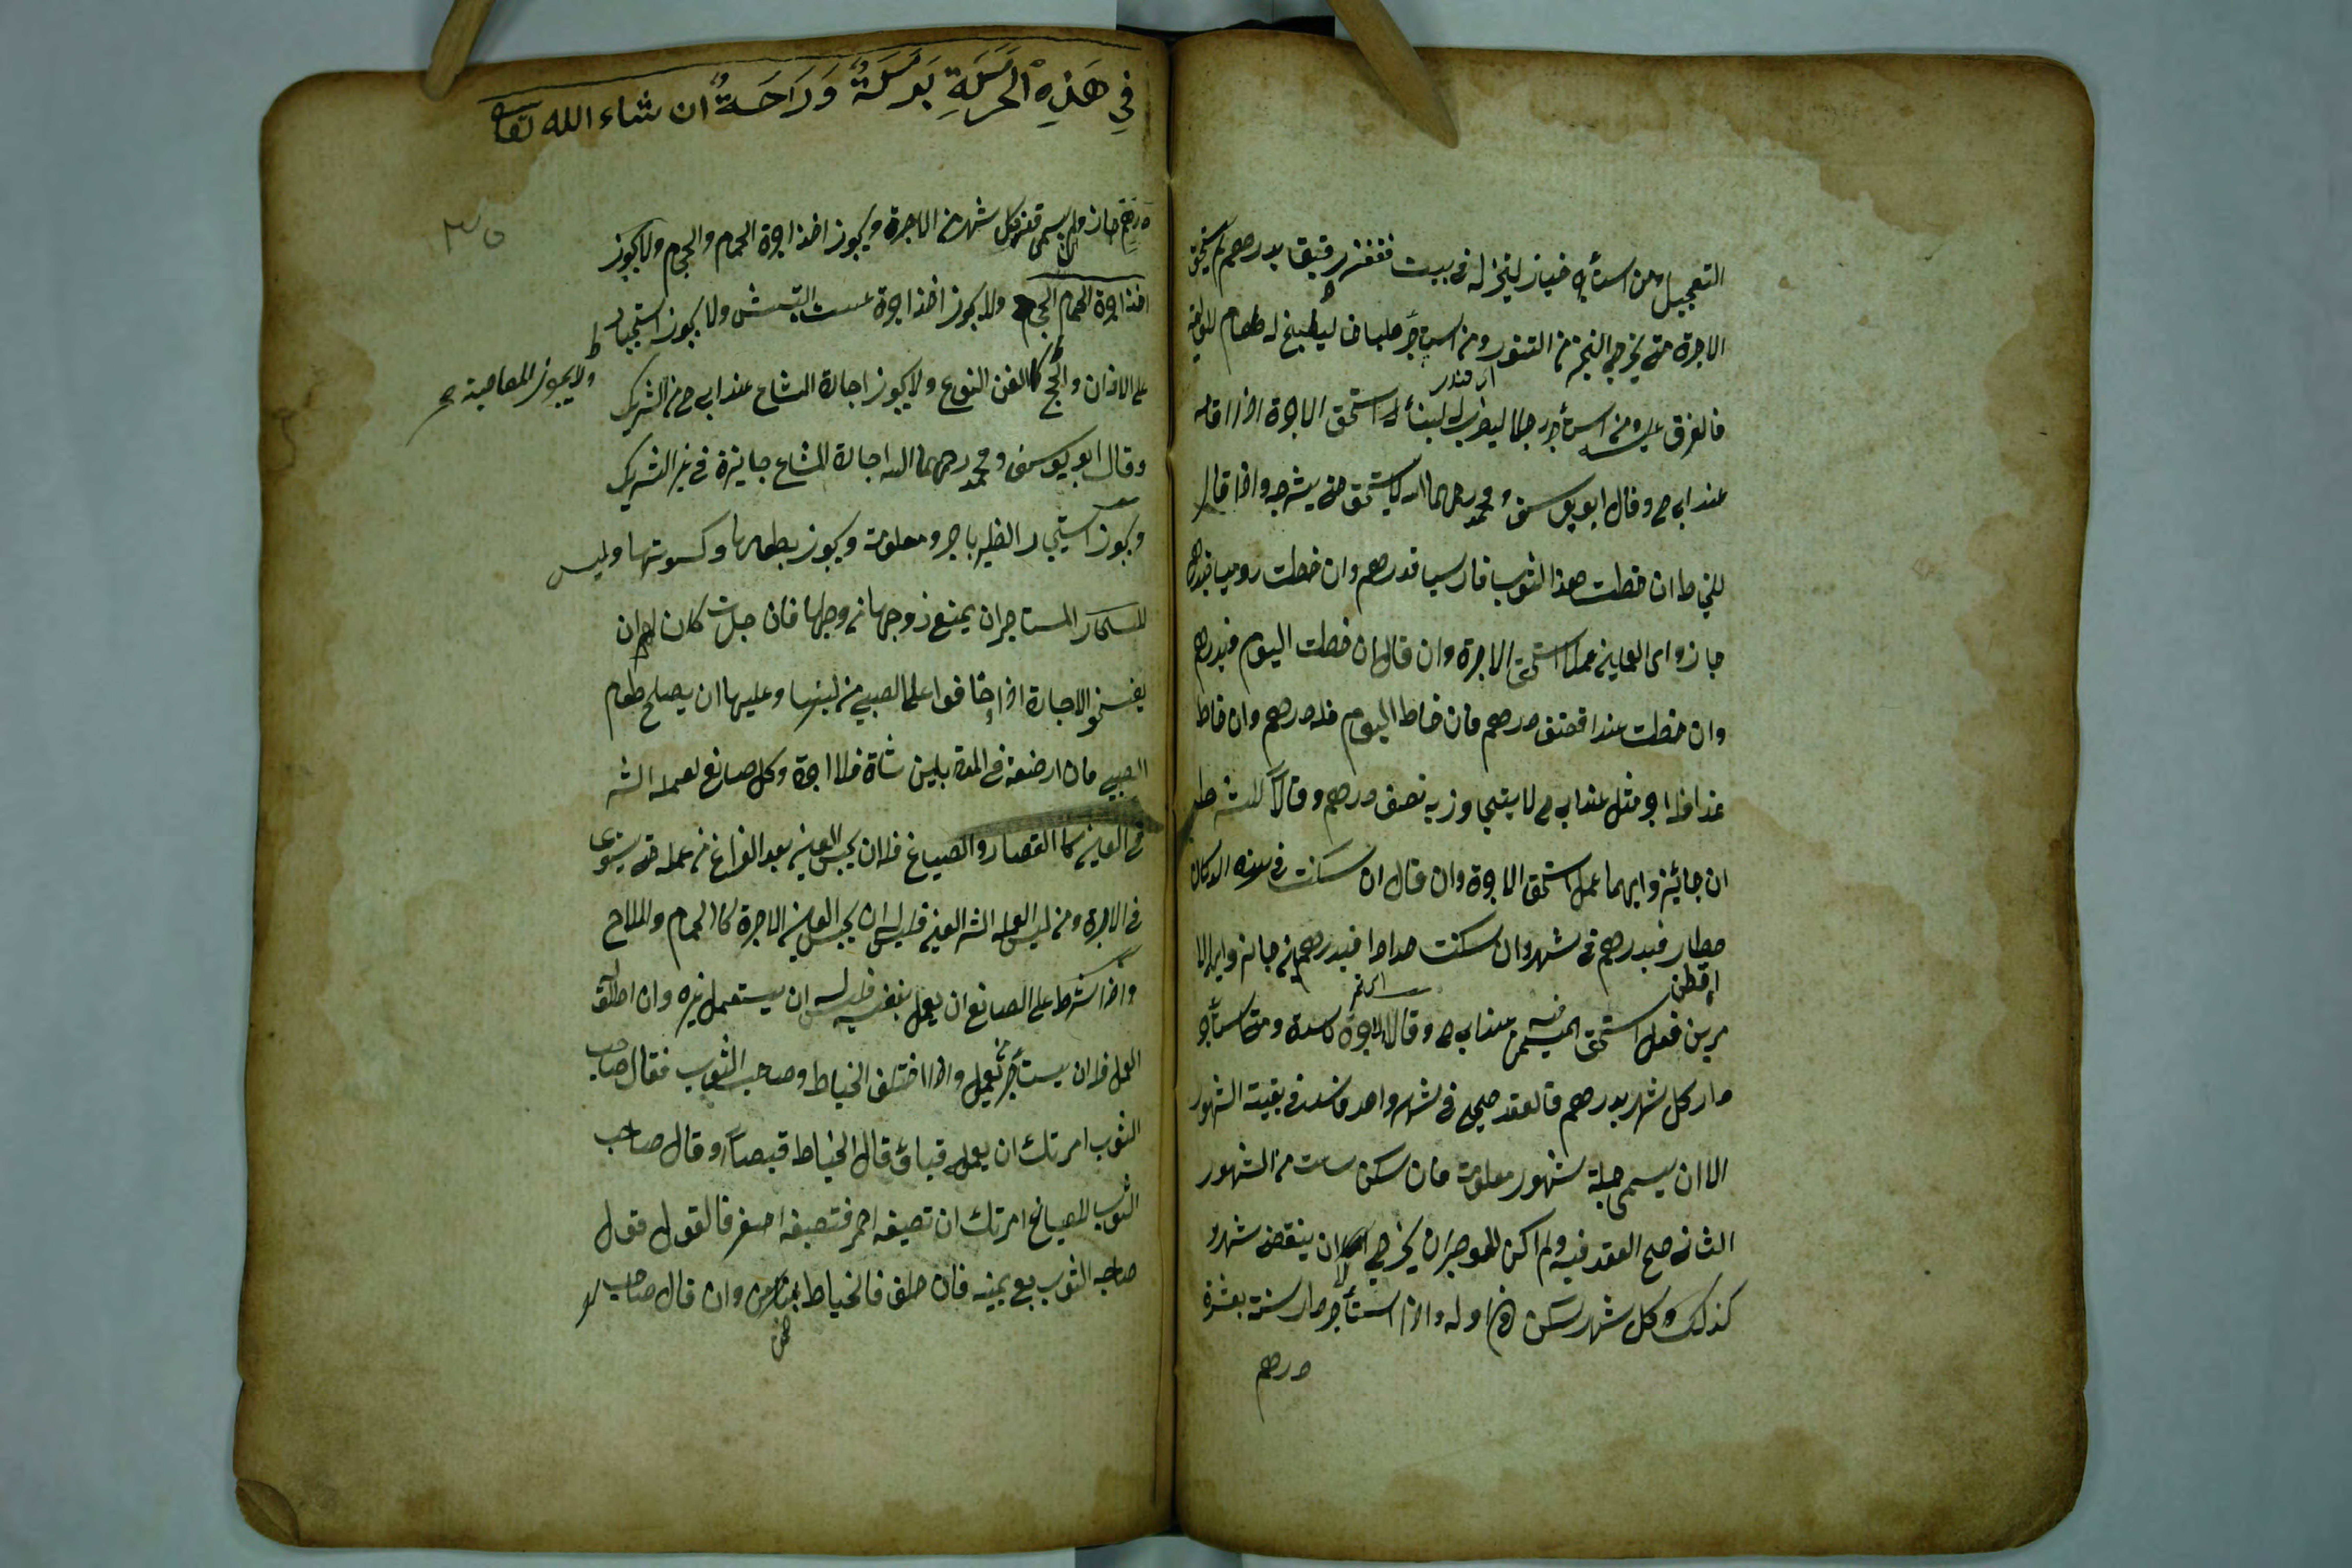 التعجيل ومن استأجر خباز ليخبز له في بيت فقفيز دقيقا بدرهم لم يستحق
الاجرة حتى يخرج الخبز من التنور ومن استاجر طباخا ليطبخ له طعام للوليمة
فالغرف عليه ومن استأجر رجلا ليضرب له لبنا استحق الاجرة اذا اقامه
عند ابي ح وقال ابو يوسف ومحمد رحمهما الله لا يستحق حتى يشرجه واذا قال
للخياط ان خطت هذا الثوب فارسيا فدرهم وان خطت روميا فبدرهم
جاز واي العملين عمل استحق الاجرة وان قال ان خطت اليوم فبدرهم
وان خطت غدا فنصف درهم فان خاط اليوم فله درهم وان خاط
غدا فله اجر مثل عند ابي ح لا يتجاوز به نصف درهم وقالا الشرط
ان جائز وايهما عمل استحق الاجرة وان قال ان سكنت في هذه الدكان
عطار فبدرهم في شهر وان سكنت حدادا فبدرهمين جاز واي الا
مرين فعل استحق المسمى فيه عند ابي ح وقالا الاجرة فاسدة ومن استأجر
دار كل شهر بدرهم فالعقد صحيح في شهر واحد فاسد في بقيته الشهور
الا ان يسمى جملة شهور معلومة فان سكن ساعت من الشهور
الثاني صح العقد فيه ولم اكن للموجر ان يخرجه الى ان ينقض شهر و
كذلك وكل شهر سكن في اوله واذا استأجر دار سنة بعشرة
درهم
في هذه ان شاء الله تعالى
درهم جاز وان لم يسمى قسط كل شهر من الاجرة ويجوز اخذ اجرة الحمام والحجام ولا يجوز
اخذ اجرة الحمام الحجام ولا يجوز اخذ اجرة عسب التيس ولا يجوز استيجار
على الاذان والحج كالغن النوع ولا يجوز اجارة المشاع عند ابي ح من الشريك
ولا يجوز المعاصية
وقال ابو يوسف ومحمد رحمهما الله اجارة المشاع جايزة في غير الشريك
ويجوز استيجار الظير باجرة معلومة ويجوز بطعامها وكسوتها وليس
المستاجر ان يمنع زوجها من وطها فان حبلت كان لهم ان
يفسخو الاجارة اذا خافوا على الصبي من لبنها وعليها ان يصلح طعام
الصبي فان ارضعته في المدة بلبن شاة فلا اجرة وكل صانع لعمله اثر
في العين كا القصار والصباغ فله ان يحبس العين بعد الفراغ من عمله حتى يستوى
في الاجرة ومن ليس لعمله اثر العين فليس له ان يحبس العين الاجرة كا الحمام والملاح
واذا اشترط على الصانع ان يعمل بنفسه فليس له ان يستعمل غيره وان اطلق
العمل فله ان يستأجر من يعمل واذا اختلف الخياط وصاحب الثوب فقال صاحب
الثوب امرتك ان يعمله قباؤ قال الخياط قميصا وقال صاحب
الثوب للصباغ امرتك ان تصبغه احمر فتصبغه اصفر فالقول قول
صاحب الثوب مع يمينه فان حلف فالخياط ضامن وان قال صاحب